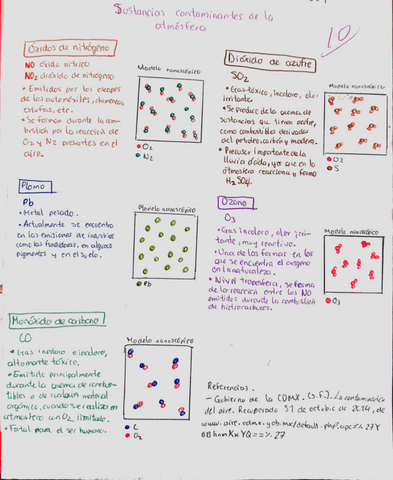 Sustancias contaminantes de la
atmósfera
10
Óxidos de nitrógeno
NO óxido nítrico
NO2 dióxido de nitrógeno
• Emitidos por los escapes
de los automóviles, chimeneas
estufas, etc.
• Se forman durante la com-
bustión por la reacción de
O2 y N2 presentes en el
aire.
Modelo nanoscópico
O2
N2
Dióxido de azufre
SO2
• Gas tóxico, incoloro, olor
irritante.
• Se produce de la quema de
sustancias que tienen azufre,
como combustibles derivados
del petróleo, carbón y madera.
• Precursor importante de la
lluvia ácida, ya que en la
atmósfera reacciona y forma
H2SO4.
Modelo nanoscópico
O2
S
Plomo
Pb
• Metal pesado.
• Actualmente se encuentra
en las emisiones de industrias
como las fundidoras, en algunos
pigmentos y en el suelo.
Modelo nanoscópico
Pb
Ozono
O3
• Gas incoloro, olor irri-
tante, muy reactivo.
• Una de las formas en las
que se encuentra el oxígeno
en la naturaleza.
• Nivel troposfera, se forma
de la reacción entre los NO
emitidos durante la combustión
de hidrocarburos.
Modelo nanoscópico
O3
Monóxido de carbono
CO
• Gas inodoro e incoloro,
altamente tóxico.
• Emitido principalmente
durante la quema de combus-
tibles o de cualquier material
orgánico, cuando se realiza en
atmósfera con O2 limitado.
• Fatal para el ser humano.
Modelo nanoscópico
C
O2
Referencias.
- Gobierno de la CDMX. (s.f.). La contaminación
del aire. Recuperado 31 de octubre de 2014, de
www.aire.cdmx.gob.mx/default.php?opc=%27Y
6BhnmKkYQ==%27